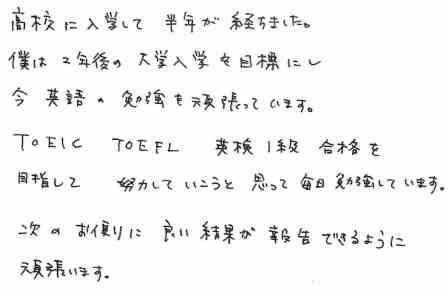 高校に入学して 半年が 経ちました。
僕は 2年後の 大学入学を目標にし
今 英語の 勉強を頑張っています。
TOEIC TOEFL 英検1級 合格を
目指して 努力していこうと 思って 毎日勉強しています。
次の お便りに 良い結果が 報告できるように
頑張います。